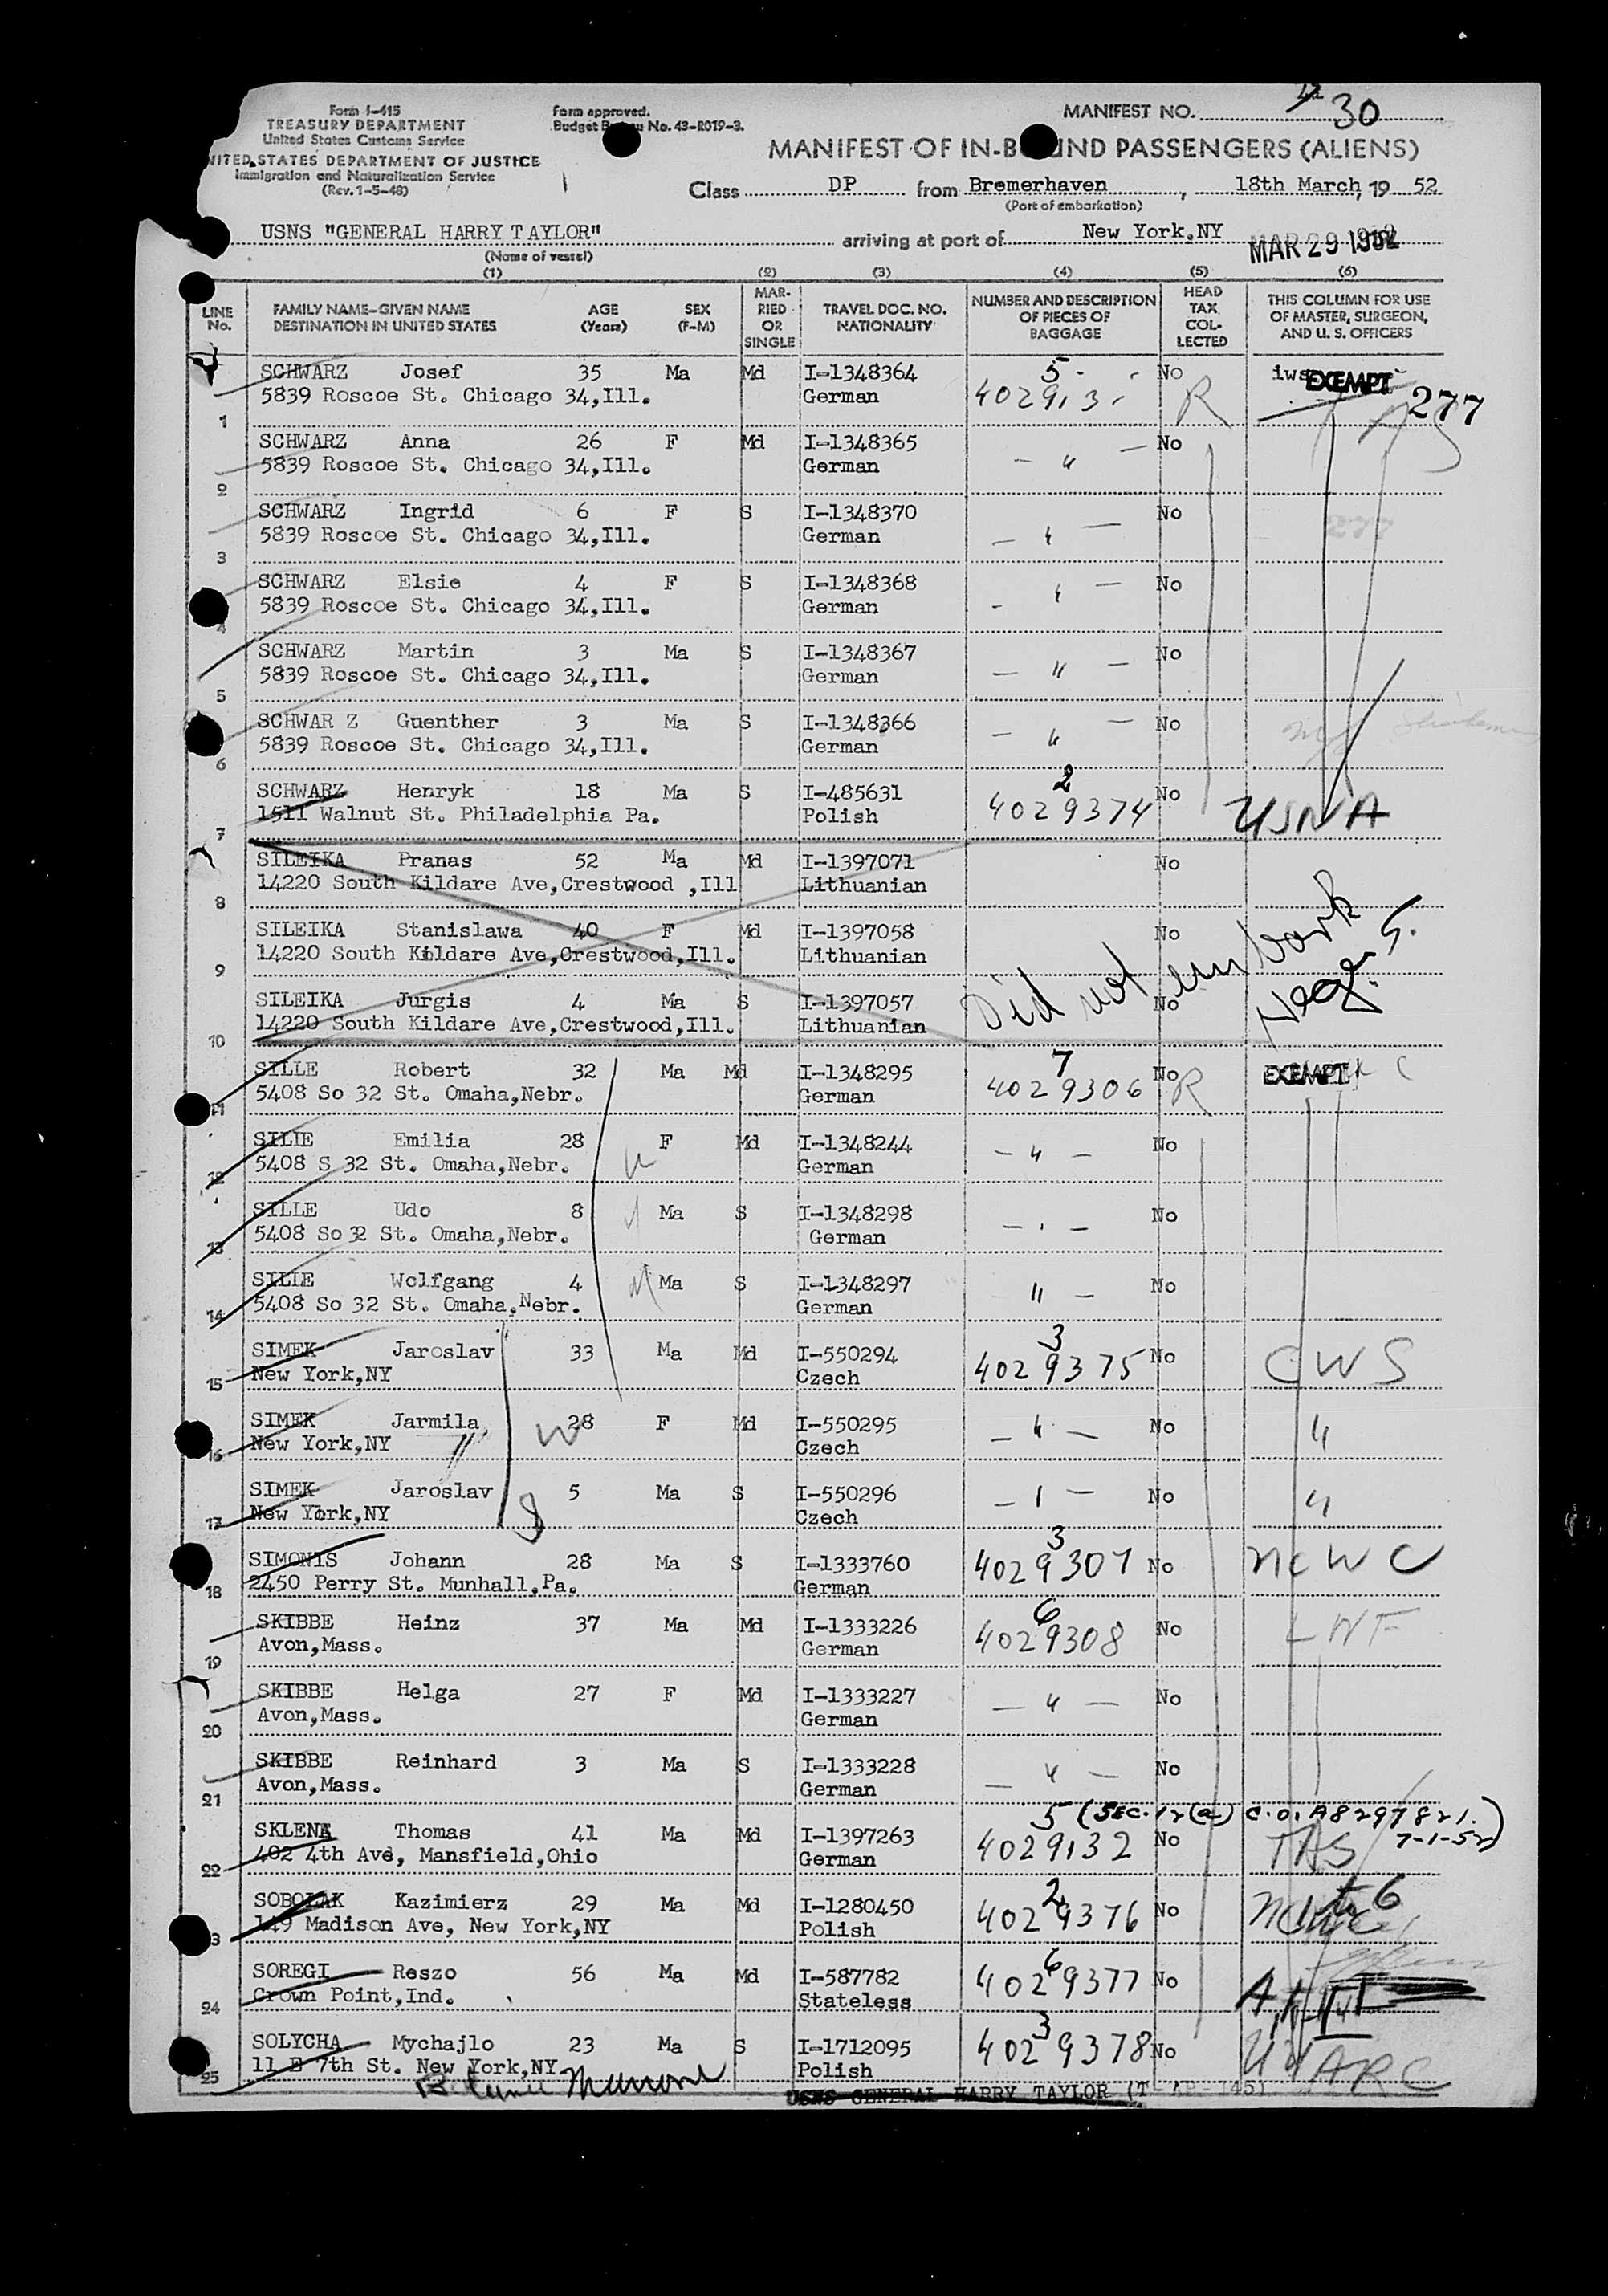 Form I-415
TREASURY DEPARTMENT
United States Customs Service
UNITED STATES DEPARTMENT OF JUSTICE
Immigration and Naturalization Service
(Rev. 1-5-48)
Form approved.
Budget Bureau No. 43-R019-3.
MANIFEST NO. 30
MANIFEST OF IN-BOUND PASSENGERS (ALIENS)
Class DP from Bremerhaven, 18th March, 19 52
(Port of embarkation)
USNS "GENERAL HARRY TAYLOR" arriving at port of New York,NY MAR 29 1952
(Name of vessel)
(1) (2) (3) (4) (5) (6)
LINE No. FAMILY NAME-GIVEN NAME DESTINATION IN UNITED STATES AGE (Years) SEX (F-M) MARRIED OR SINGLE TRAVEL DOC. NO. NATIONALITY NUMBER AND DESCRIPTION OF PIECES OF BAGGAGE HEAD TAX COLLECTED THIS COLUMN FOR USE OF MASTER, SURGEON, AND U. S. OFFICERS
SCHWARZ Josef 35 Ma Md I-1348364 5 No iws EXEMPT 277
5839 Roscoe St. Chicago 34,Ill. German R
1
SCHWARZ Anna 26 F Md I-1348365 No
5839 Roscoe St. Chicago 34,Ill. German — " —
2
SCHWARZ Ingrid 6 F S I-1348370 No
5839 Roscoe St. Chicago 34,Ill. German — " —
3
SCHWARZ Elsie 4 F S I-1348368 No
5839 Roscoe St. Chicago 34,Ill. German - " —
4
SCHWARZ Martin 3 Ma S I-1348367 No
5839 Roscoe St. Chicago 34,Ill. German — " —
5
SCHWAR Z Guenther 3 Ma S I-1348366 No
5839 Roscoe St. Chicago 34,Ill. German — " —
6
SCHWARZ Henryk 18 Ma S I-485631 2 No
1511 Walnut St. Philadelphia Pa. Polish 4029374 USNA
7
SILEIKA Pranas 52 Ma Md I-1397071 No
14220 South Kildare Ave,Crestwood ,Ill Lithuanian
8
SILEIKA Stanislawa 40 F Md I-1397058 No
14220 South Kildare Ave,Crestwood,Ill. Lithuanian
9
Did not embark
SILEIKA Jurgis 4 Ma S I-1397057 No
14220 South Kildare Ave,Crestwood,Ill. Lithuanian
10
SILLE Robert 32 Ma Md I-1348295 7 No EXEMPT
5408 So 32 St. Omaha,Nebr. German 4029306 R
11
SILIE Emilia 28 F Md I-1348244 No
5408 S 32 St. Omaha,Nebr. German — " —
12
SILLE Udo 8 Ma S I-1348298 No
5408 So 32 St. Omaha,Nebr. German — " —
13
SILIE Wolfgang 4 Ma S I-1348297 No
5408 So 32 St. Omaha,Nebr. German " —
14
SIMEK Jaroslav 33 Ma Md I-550294 3 No
New York,NY Czech 4029375 CWS
15
SIMEK Jarmila 28 F Md I-550295 No
New York,NY W Czech — " — "
16
SIMEK Jaroslav 5 Ma S I-550296 No
New York,NY Czech — " — "
17
SIMONIS Johann 28 Ma S I-1333760 3 No
2450 Perry St. Munhall,Pa. German 4029307 NCWC
18
SKIBBE Heinz 37 Ma Md I-1333226 6 No LWF
Avon,Mass. German 4029308
19
SKIBBE Helga 27 F Md I-1333227 No
Avon,Mass. German — " —
20
SKIBBE Reinhard 3 Ma S I-1333228 No
Avon,Mass. German — " —
21
5 (SEC. 12(a) C.O. A8297821. 7-1-52)
SKLENA Thomas 41 Ma Md I-1397263 No
402 4th Ave, Mansfield,Ohio German 4029132 TAS
22
SOBOLAK Kazimierz 29 Ma Md I-1280450 2 No
149 Madison Ave, New York,NY Polish 4029376
23
SOREGI Reszo 56 Ma Md I-587782 6 No
Crown Point,Ind. Stateless 4029377
24
SOLYCHA Mychajlo 23 Ma S I-1712095 3 No
11 E 7th St. New York,NY Polish 4029378 UUARC
25
USNS GENERAL HARRY TAYLOR (T-AP-145)